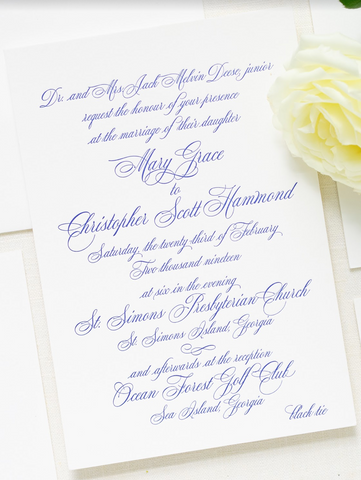 Dr. and Mrs. Jack Melvin Deese, junior
request the honour of your presence
at the marriage of their daughter
Mary Grace
to
Christopher Scott Hammond
Saturday, the twenty third of February
Two thousand nineteen
at six in the evening
St. Simons Presbyterian Church
St. Simons Island, Georgia
and afterwards at the reception
Ocean Forest Golf Club
Sea Island, Georgia
black tie